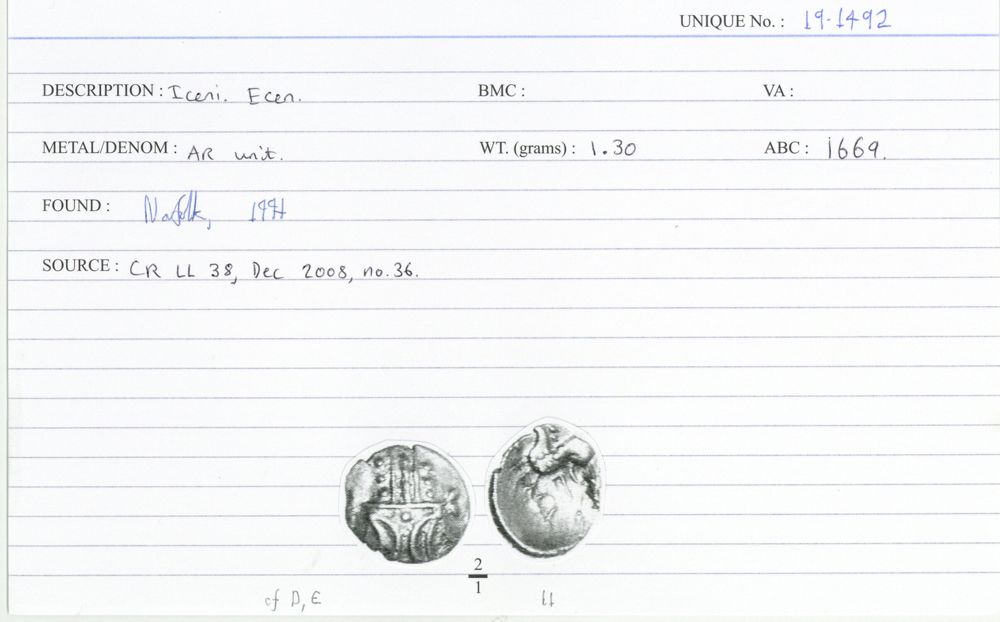 UNIQUE No. : 19-1492
DESCRIPTION : Iceni. Ecen. BMC : VA :
METAL/DENOM : AR unit. WT. (grams) : 1.30 ABC : 1669.
FOUND : Norfolk,
SOURCE : CR LL 38, Dec 2008, no. 36.
2
1
cf D, E